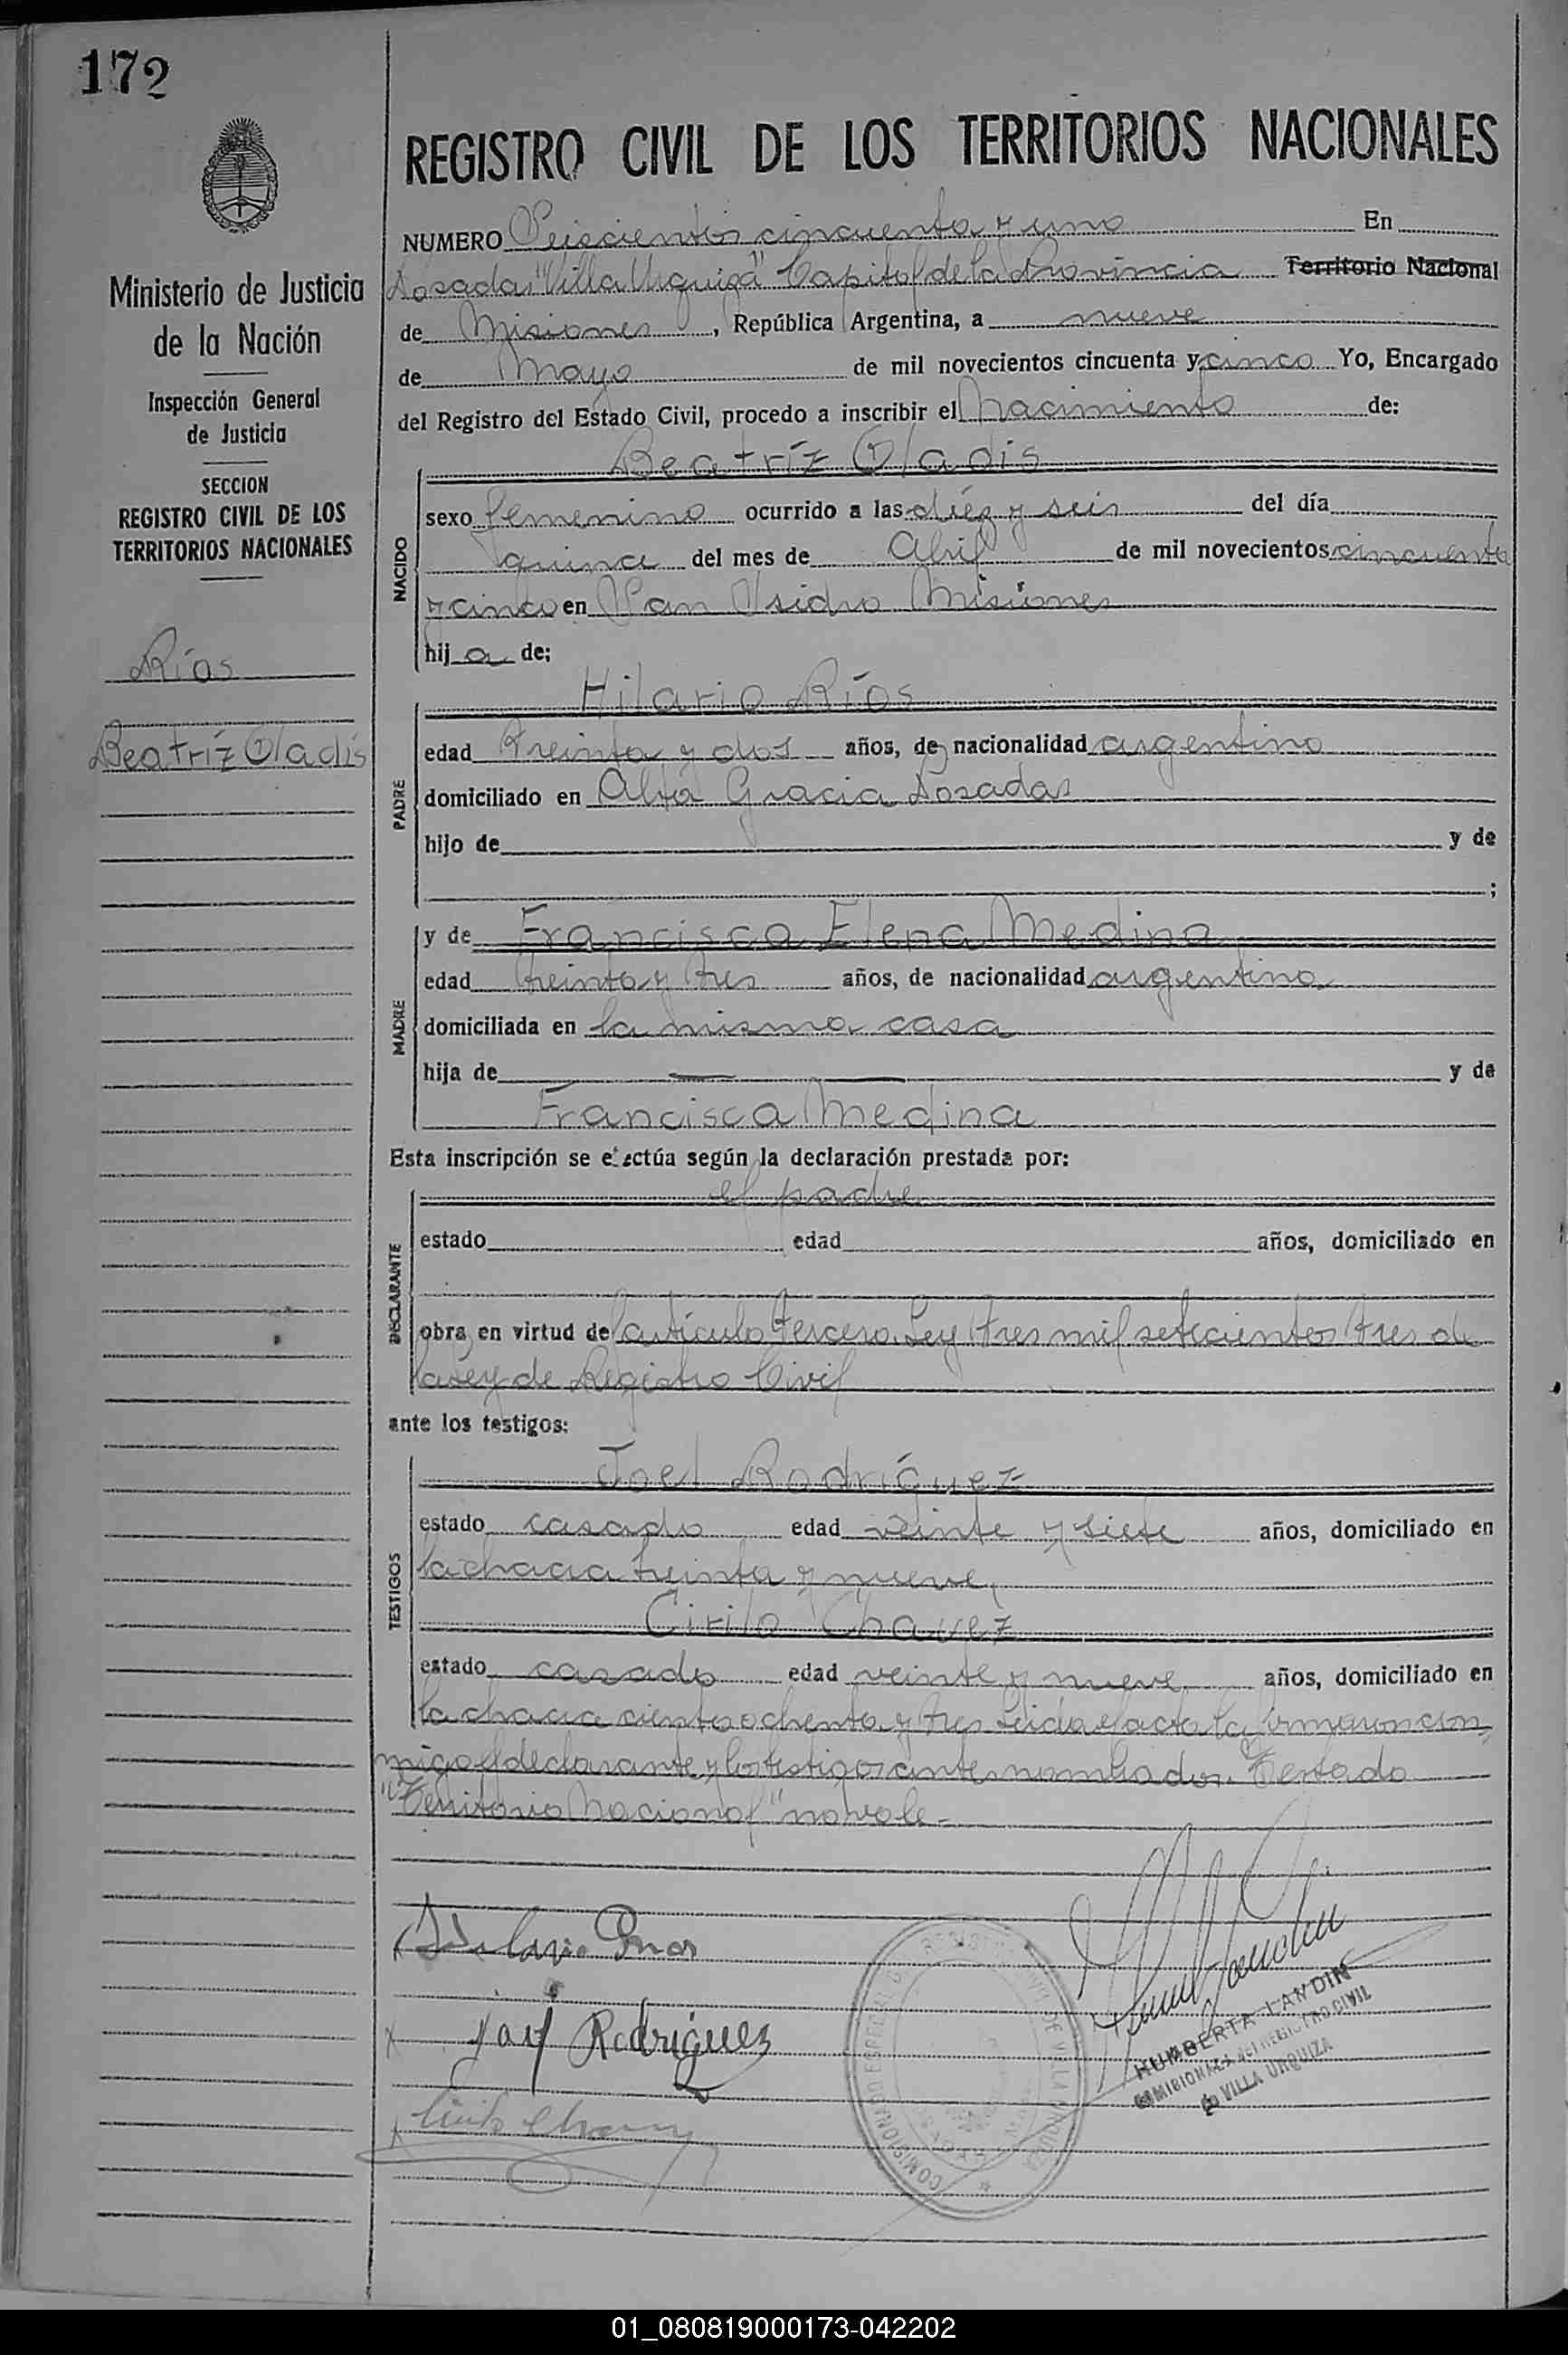 172
REGISTRO CIVIL DE LOS TERRITORIOS NACIONALES
Ministerio de Justicia
de la Nación
Inspección General
de Justicia
SECCION
REGISTRO CIVIL DE LOS
TERRITORIOS NACIONALES
Ríos
Beatríz Gladis
NUMERO Seiscientos cincuenta y uno En
Posadas "Villa Urquiza" Capital de la Provincia Territorio Nacional
de Misiones, República Argentina, a nueve
de Mayo de mil novecientos cincuenta y cinco Yo, Encargado
del Registro del Estado Civil, procedo a inscribir el Nacimiento de:
NACIDO
Beatríz Gladis
sexo femenino ocurrido a las diéz y seis del día
quince del mes de Abril de mil novecientos cincuenta
y cinco en San Isidro Misiones
hija de:
PADRE
Hilario Ríos
edad treinta y dos años, de nacionalidad argentino
domiciliado en Alta Gracia Posadas
hijo de y de
;
MADRE
y de Francisca Elena Medina
edad treinta y tres años, de nacionalidad argentina
domiciliada en la misma casa
hija de — — y de
Francisca Medina
Esta inscripción se efectúa según la declaración prestada por:
DECLARANTE
el padre
estado edad años, domiciliado en
obra en virtud del artículo tercero Ley tres mil setecientos tres de
la Ley de Registro Civil
ante los testigos:
TESTIGOS
Joel Rodríguez
estado casado edad veinte y siete años, domiciliado en
la chacra treinta y nueve,
Cirilo Chavez
estado casado edad veinte y nueve años, domiciliado en
la chacra ciento ochenta y tres Leida el acta la firmaron con
migo el declarante y los testigos antes nombrados. Testado
"Territorio Nacional" no vale-
Rodriguez
Cirilo Chavez
COMISIONADO ESPECIAL DEL REGISTRO CIVIL DE VILLA URQUIZA
HUMBERTA LANDIN
COMISIONADA DEL REGISTRO CIVIL
DE VILLA URQUIZA
01_080819000173-042202